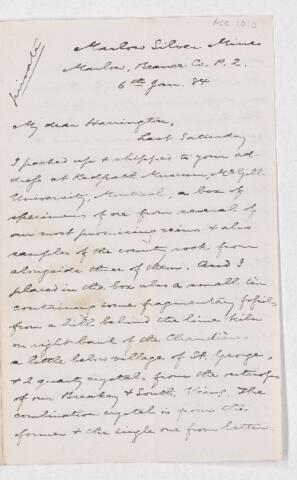 ACC 1010
private
Marlow Silver Mine
Marlow, Beauce Co. P. Q.
6th Jan. 84
My dear Harrington,
Last Saturday
I packed up & shipped to your ad-
dress at Redpath Museum, McGill
University, Montreal, a box of
specimens of ore from several of
our most promising veins & also
samples of the country rock from
alongside three of them. And I
placed in the box also a small tin
containing some fragmentary fossils
from a hill behind the lime kiln
on right bank of the Chaudière
a little below village of St. George,
& 2 quartz crystals from the outcrops
of our Breakey & South Veins. The
combination crystal is from the
former & the single one from latter.